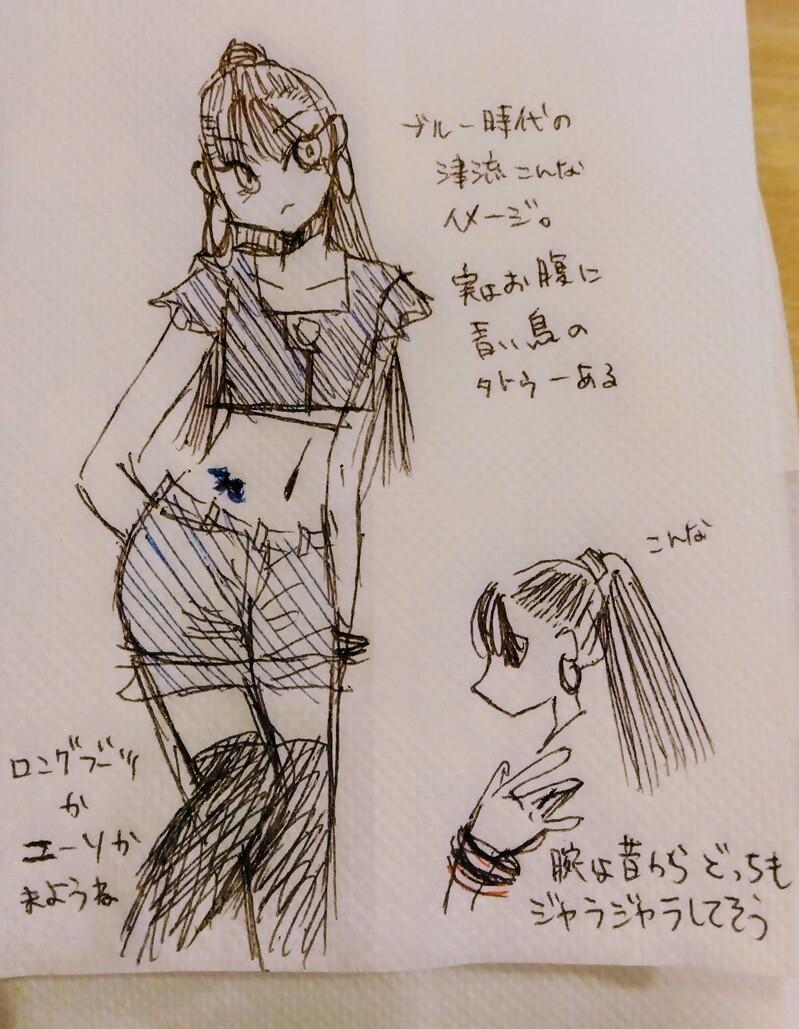 ブルー時代の
津流こんな
イメージ。
実はお腹に
青い鳥の
タトゥーある
こんな
ロングブーツ
か
ニーソか
まような
腕は昔から どっちも
ジャラジャラしてそう